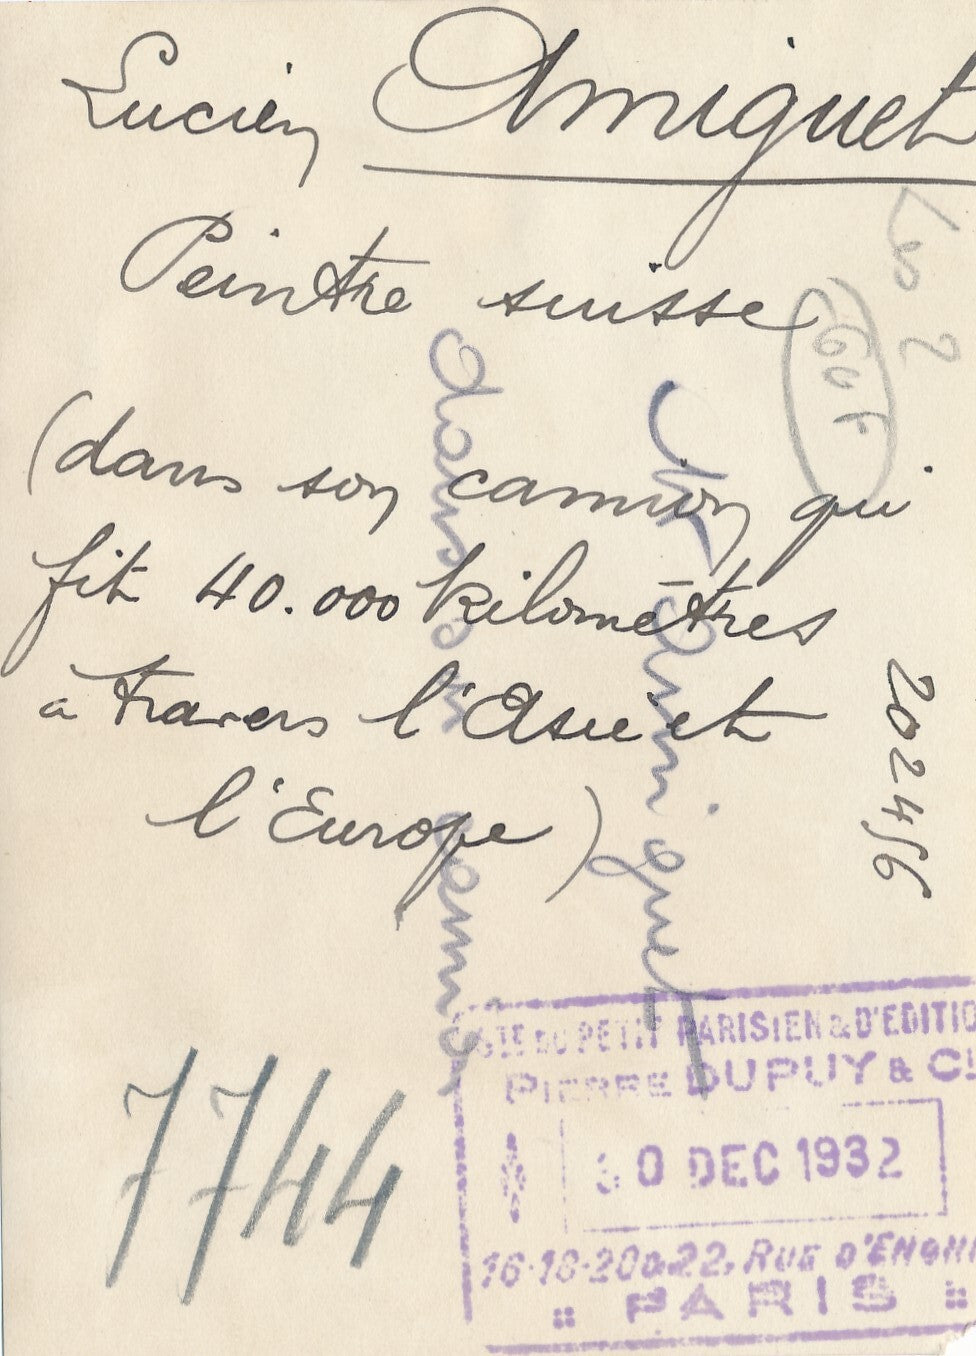 Lucien Amiguet
Peintre suisse
(dans son camion qui
fit 40.000 kilomètres
à travers l'Asie et
l'Europe)
Mr Amiguet
dans son camion
202456
7744
STE DU PETIT PARISIEN & D'EDITIO
PIERRE DUPUY & CIE
30 DEC 1932
16-18-20 & 22, RUE D'ENGHI
PARIS